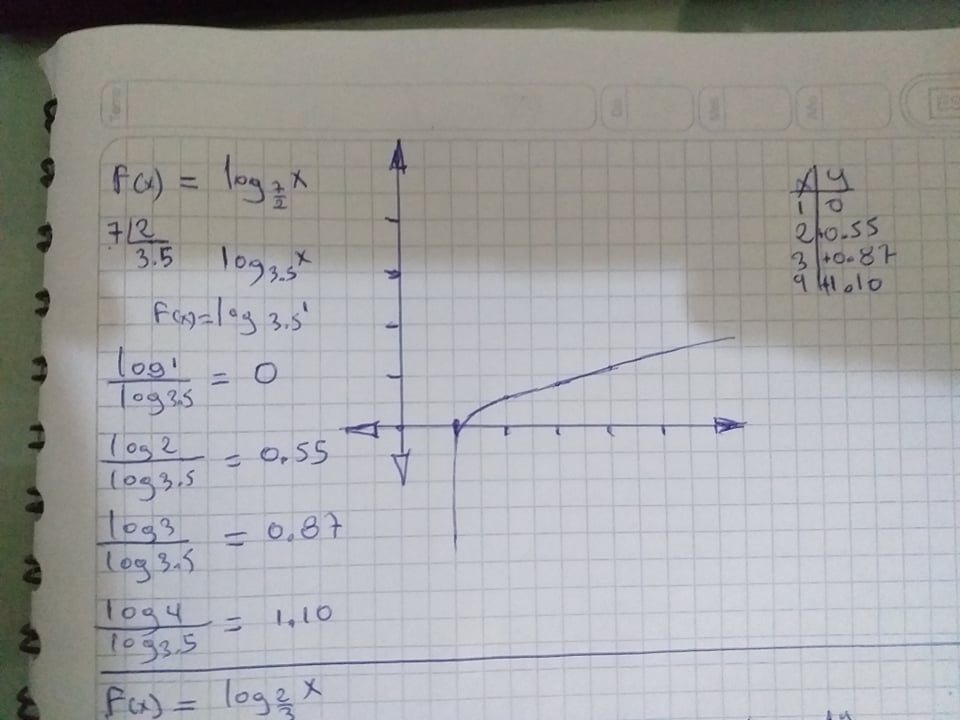 F(x) = log 7/2 x
7 | 2
3.5
log 3.5 x
F(x) = log 3.5 1
log 1 / log 3.5 = 0
log 2 / log 3.5 = 0.55
log 3 / log 3.5 = 0.87
log 4 / log 3.5 = 1.10
F(x) = log 2/3 x
x | y
1 | 0
2 | +0.55
3 | +0.87
4 | +1.10